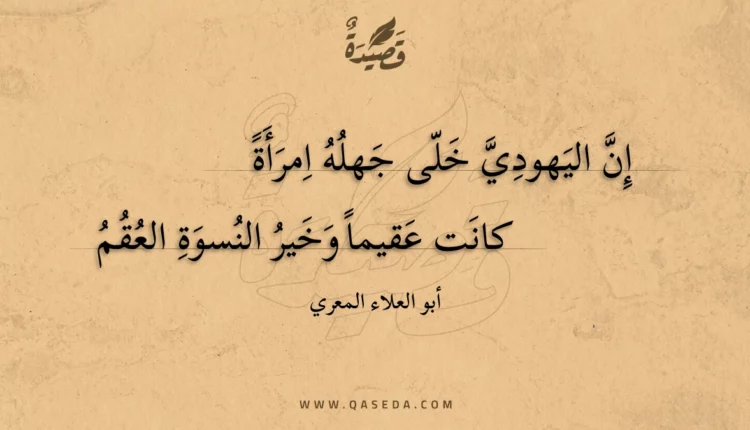 قَصِيْدَةٌ
إِنَّ اليَهودِيَّ خَلّى جَهلُهُ اِمرَأَةً
كانَت عَقيماً وَخَيرُ النُسوَةِ العُقُمُ
أبو العلاء المعري
WWW.QASEDA.COM